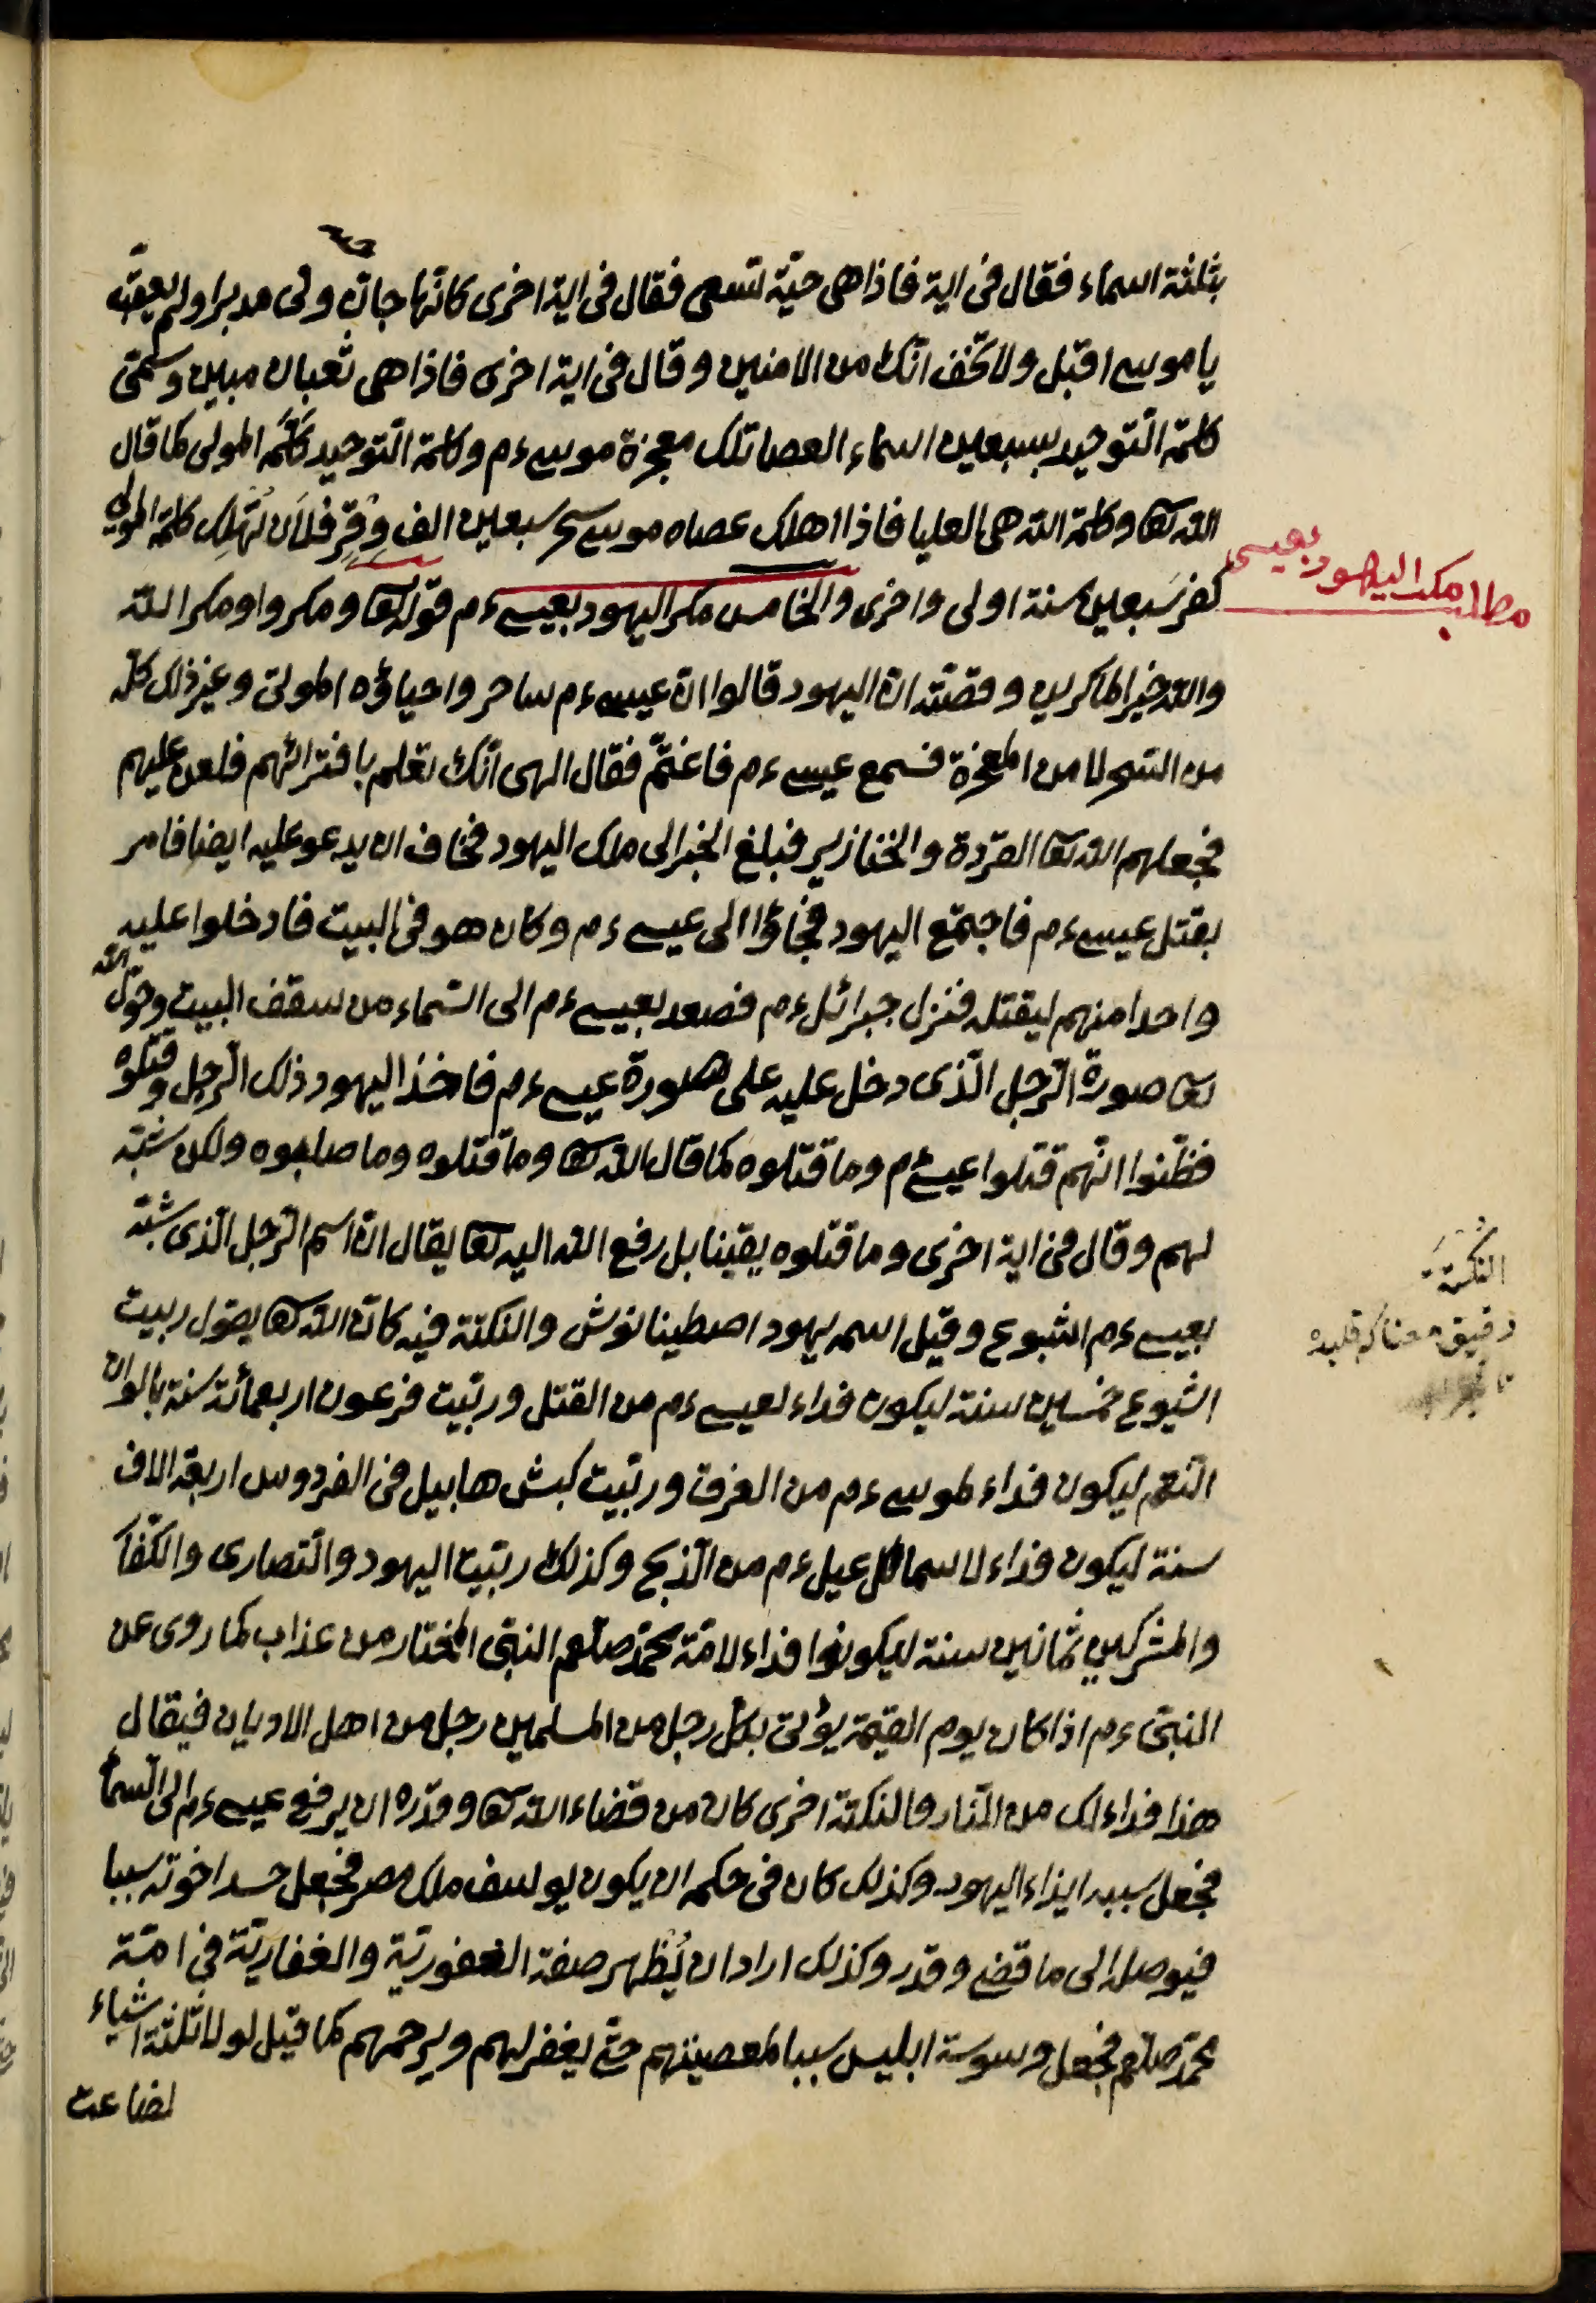 بثلثة اسماء فقال فى اية فاذا هى حيّة تسعى فقال فى اية اخرى كانّها جانّ ولى مدبرا ولم يعقّب
يا موسى اقبل ولا تخف انّك من الامنين وقال فى اية اخرى فاذا هى ثعبان مبين وسمّى
كلمة التّوحيد بسبعين اسماء العصا تلك معجزة موسى ءم وكلمة التّوحيد كَلَمُ المولى كما قال
الله تعا وكلمة الله هى العليا فاذا اهلك عصاه موسى سحر سبعين الف وِقِرٍ فلاَن تُهْلِك كلمة المولى
كفر سَبعين سنة اولى واخرى والخامس مكر اليهود بعيسى ءم قوله تعا ومكروا ومكر الله
والله خير الماكرين وقصّته انّ اليهود قالوا انّ عيسى ءم ساحر واحياؤه الموتى وغير ذلك كلّه
من السّحر لا من المعجزة فسمع عيسى ءم فاغتمّ فقال الهى انّك تعلم بافترائهم فلعن عليهم
فجعلهم الله تعا القردة والخنازير فبلغ الخبر الى ملك اليهود فخاف ان يدعو عليه ايضا فامر
بقتل عيسى ءم فاجتمع اليهود فجاؤا الى عيسى ءم وكان هو فى البيت فادخلوا عليه
واحدا منهم ليقتله فنزل جبرائل ءم فصعد بعيسى ءم الى السّماء من سقف البيت وحوّل الله
تعا صورة الرّجل الّذى دخل عليه على صورة عيسى ءم فاخذ اليهود ذلك الرّجل وقتلوه
فظنّوا انّهم قتلوا عيسى ءم وما قتلوه كما قال الله تعا وما قتلوه وما صلبوه ولكن شبّه
لهم وقال فى اية اخرى وما قتلوه يقينا بل رفع الله اليه تعا يقال انّ اسم الرّجل الّذى شبّه
بعيسى ءم اشيوع وقيل اسمه يهود اصطينانوش والنكتة فيه كانّ الله تعا يقول ربيت
اشيوع خمسين سنة ليكون فداء لعيسى ءم من القتل وربّيت فرعون اربعمائة سنة بالوان
النّعم ليكون فداء لموسى ءم من الغرق وربّيت كبش هابيل فى الفردوس اربعة الاف
سنة ليكون فداء لاسماعيل ءم من الذّبح وكذلك ربّيت اليهود والنّصارى والكفّا
والمشركين ثمانين سنة ليكونوا فداء لامّة محمّد صلعم النبىّ المختار من عذاب كما روى عن
النبىّ ءم اذا كان يوم القيمة يؤتى بكلّ رجل من المسلمين رجل من اهل الاديان فيقال
هذا فداءك من النّار والنكتة اخرى كان من قضاء الله تعا وقدره ان يرفع عيسى ءم الى السّما
فجعل سببه ايذاء اليهود وكذلك كان فى حكمه ان يكون يوسف ملك مصر فجعل حسد اخوته سببا
فيوصله الى ما قضى وقدر وكذلك اراد ان يُظهر صفة الغفوريّة والغفاريّة فى امّة
محمّد صلعم فجعل وسوسة ابليس سببا لمعصيتهم حتّى يغفر لهم ويرحمهم كما قيل لولا ثلثة اشياء
لضاعت
مطلب مكر اليهود بعيسى
النُكْتَةُ
دقيق معنا كه قلبده